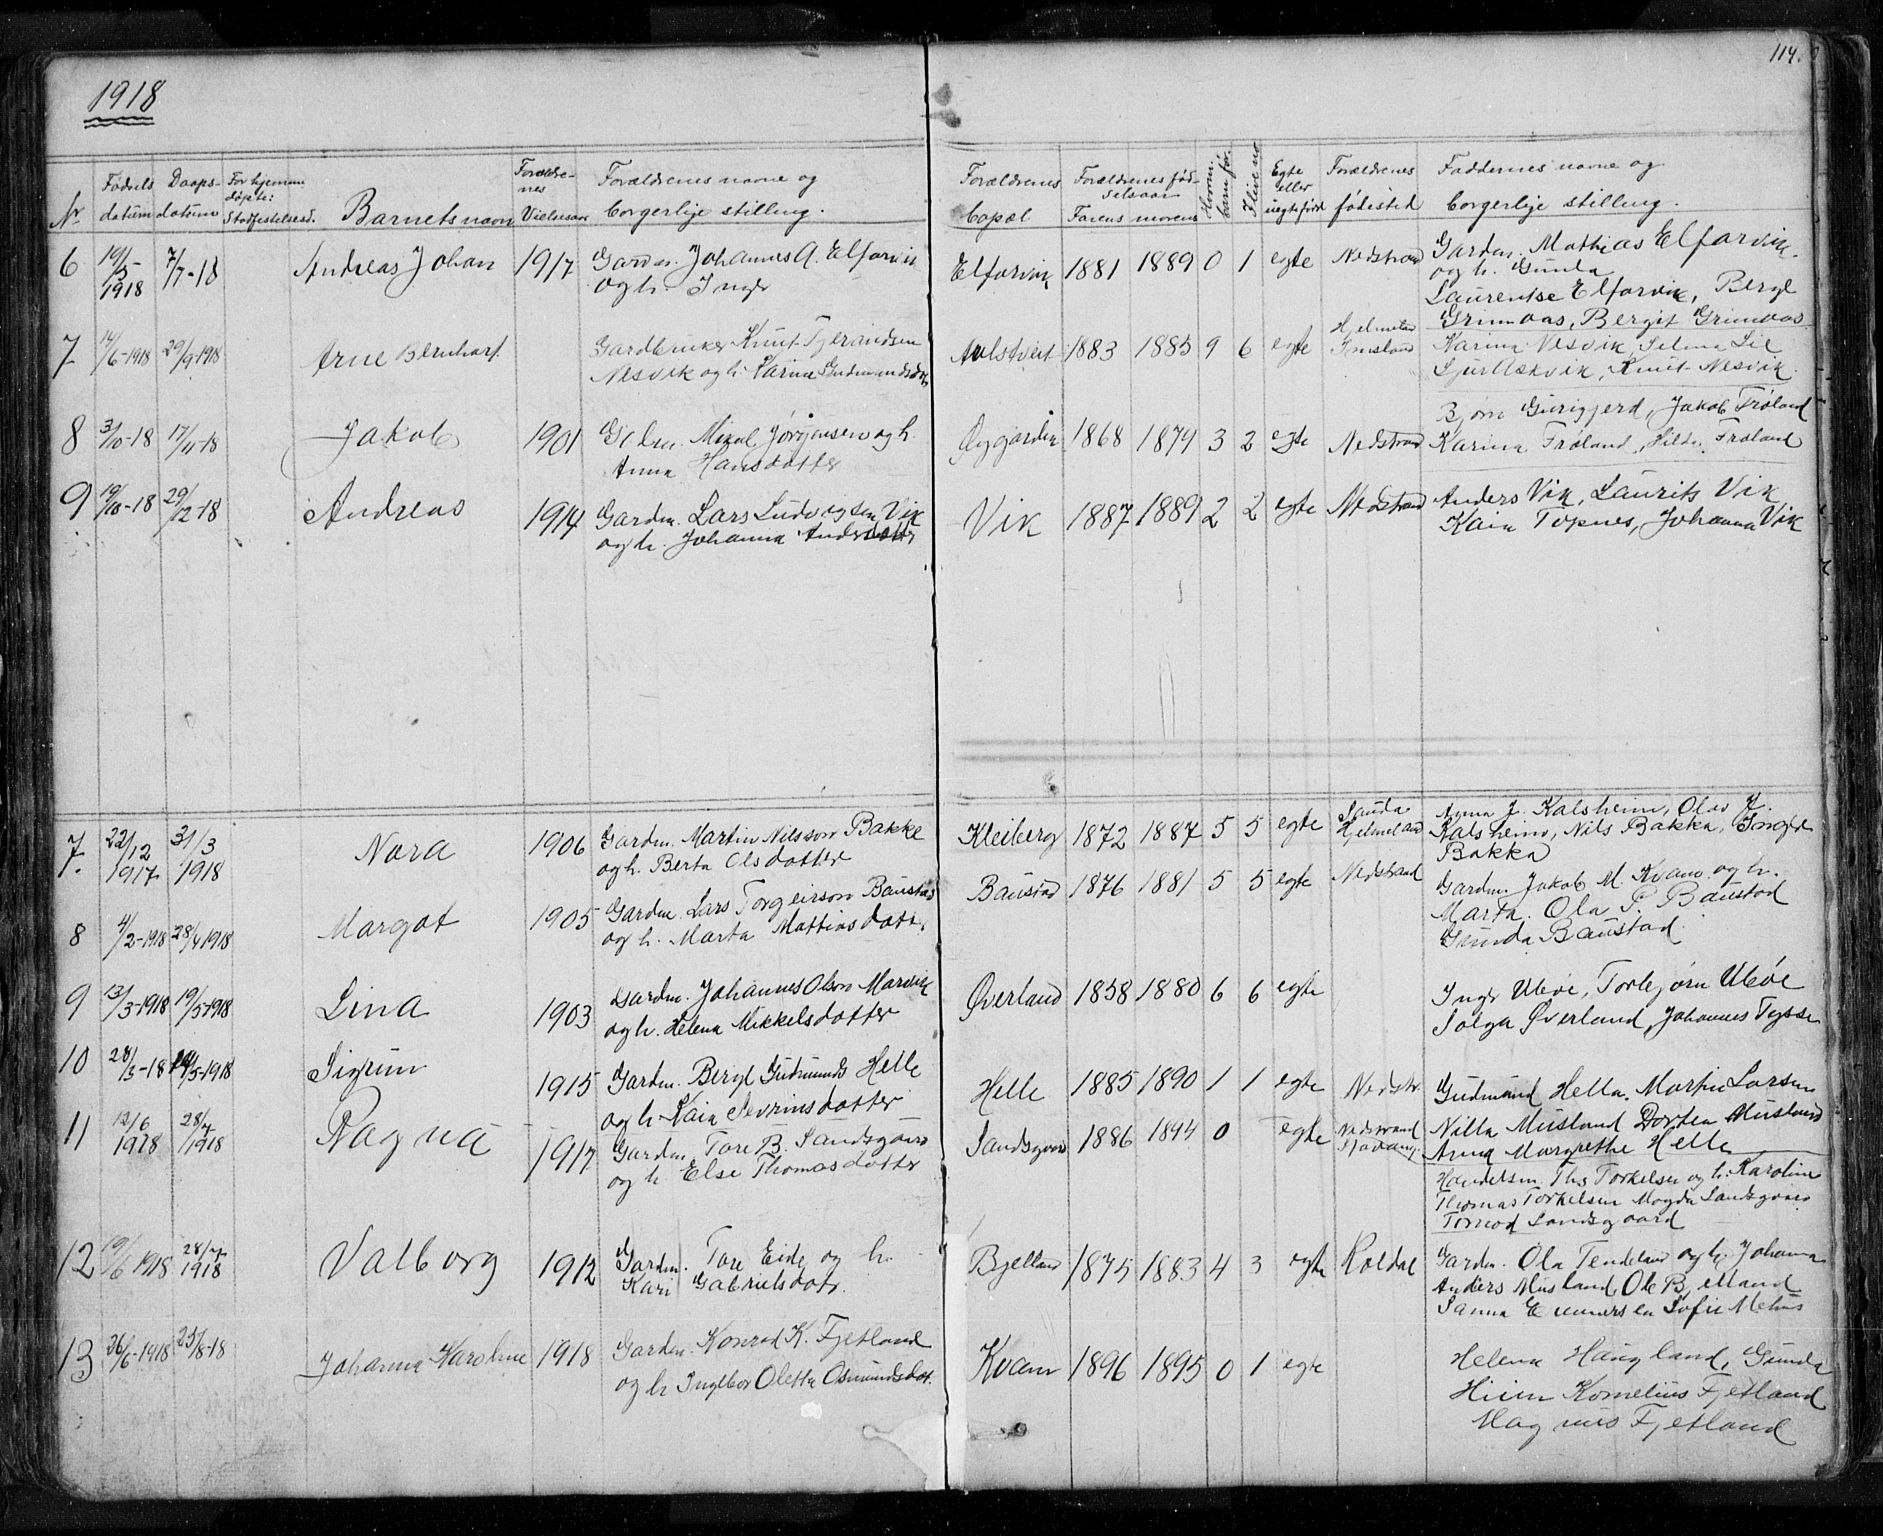 1918
114.
Nr. Fødsels datum Daaps- datum For hjemme døpte: Stadfestelsesd. Barnets navn Forældre- nes Vielsesaar Forældrenes navne og borgerlige stilling.
Forældrenes bopæl Forældrenes fød- selsaar Farens morens Egte eller uegte født Forældrenes fødested Faddernes navne og borgerlige stilling.
6 19/5 1918 7/7-18 Andreas Johan 1917 Gardm. Johannes A. Elfarvik
og h. Inga
Elfarvik 1881 1889 0 1 egte Nedstrand Gardm. Mathias Elfarvik
og h. Gunda
Laurentse Elfarvik, Bergt
Grimaas, Bergit Grimaas
7 14/6-1918 29/9-1918 Arne Bernhart Gardbruker Knut Tjerandsen
Nesvik og h. Karina Gudmundsdtr.
1883 1885 9 6 egte Hjelmeland Karina Nesvik, Selma Lie
Sjur Askvik, Knut Nesvik
8 3/10-18 17/11-18 Jakob 1901 Mikal Jørgensen og h.
Anna Hansdotter
Øygarden 1868 1879 3 2 egte Nedstrand Bjørn Gurigjerd, Jakob Frøland
Karina Frøland, Hilda Frøland
9 19/10-18 29/12-18 Andreas 1914 Gardm. Lars Ludvigsen Vik
og h. Johanna Andersdotter
Vik 1887 1889 2 2 egte Nedstrand Anders Vik, Laurits Vik
Kaia Topnes, Johanna Vik
7. 22/12 1917 31/3 1918 Nora 1906 Gardm. Martin Nilsson Bakke
og h. Berta Olsdotter
Kleiberg 1872 1887 5 5 egte Sauda Hjelmeland Anna J. Kalsheim, Olav J.
Kalsheim, Nils Bakka, Inger
Bakka
8 4/2-1918 28/4 1918 Margot 1905 Gardm. Lars Torgeirson Baustad
og h. Marta Mattiasdotter
Baustad 1876 1881 5 5 egte Nedstrand Gardm. Jakob M. Kvam og h.
Marta. Ola P. Baustad
Gunda Baustad.
9 13/3-1918 19/5-1918 Lina 1903 Gardm. Johannes Olson Marvik
og h. Helena Mikkelsdotter
Øverland 1858 1880 6 6 egte Inger Uløe, Torbjørn Uløe
Solga Øverland, Johannes Tysse
10 28/3-18 Sigrun 1915 Gardm. Bergt Gudmunds Helle
og h. Kaia Sevrinsdotter
Helle 1885 1890 1 1 egte Nedstr. Gudmund Hella. Martin Larsen
Nilla Musland Dortea Musland
Anna Margrethe Helle
11 12/6 1918 28/7 1918 Ragna 1917 Gardm. Tore B. Sandsgaard
og h Else Thomasdotter
Sandsgaard 1886 1894 0 egte Nedstrand Stavang. Handelsm. Ths Torkelsen og h. Karoline
Thomas Torkelsen Magda Sandsgaard
Tormod Sandsgaard
12 19/6 1918 28/7 1918 Valborg 1912 Gardm. Tore Eide og h.
Kari Gabrielsdotr.
Bjelland 1875 1883 4 3 egte Roldal Gardm. Ola Tendeland og h. Johanna
Anders Musland, Ole Bjelland
Sanna Gunnersen Sofie Mehus
13 26/6-1918 25/8-18 Johanna Karoline 1918 Gardm. Konrad K. Fjetland
og h Ingebor Oletta Osmundsdot.
Kvam 1896 1895 0 1 egte Helena Haugland, Gunda
Hiim Kornelius Fjetland
Magnus Fjetland